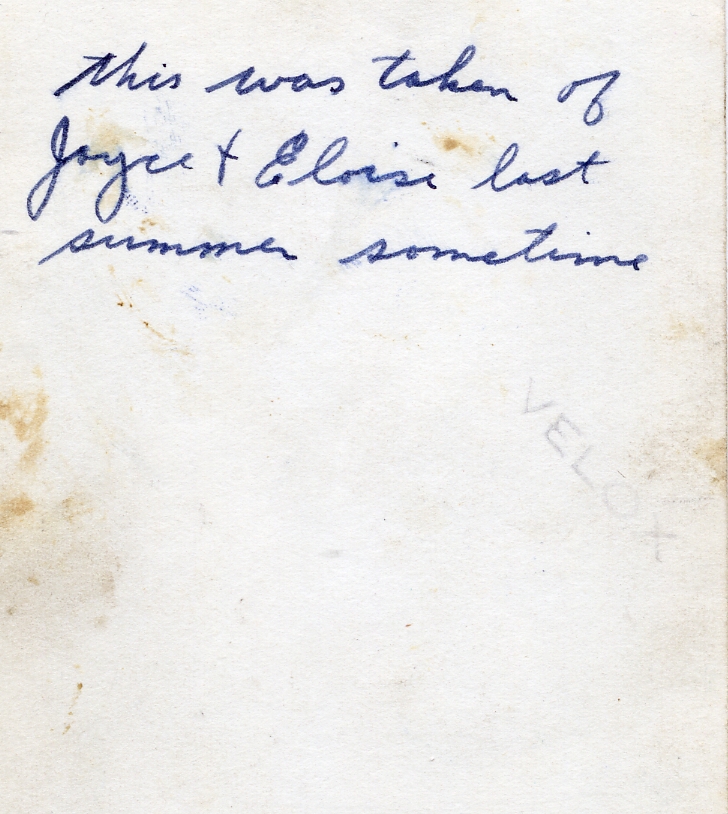 this was taken of
Joyce + Eloise last
summer sometime
VELOX